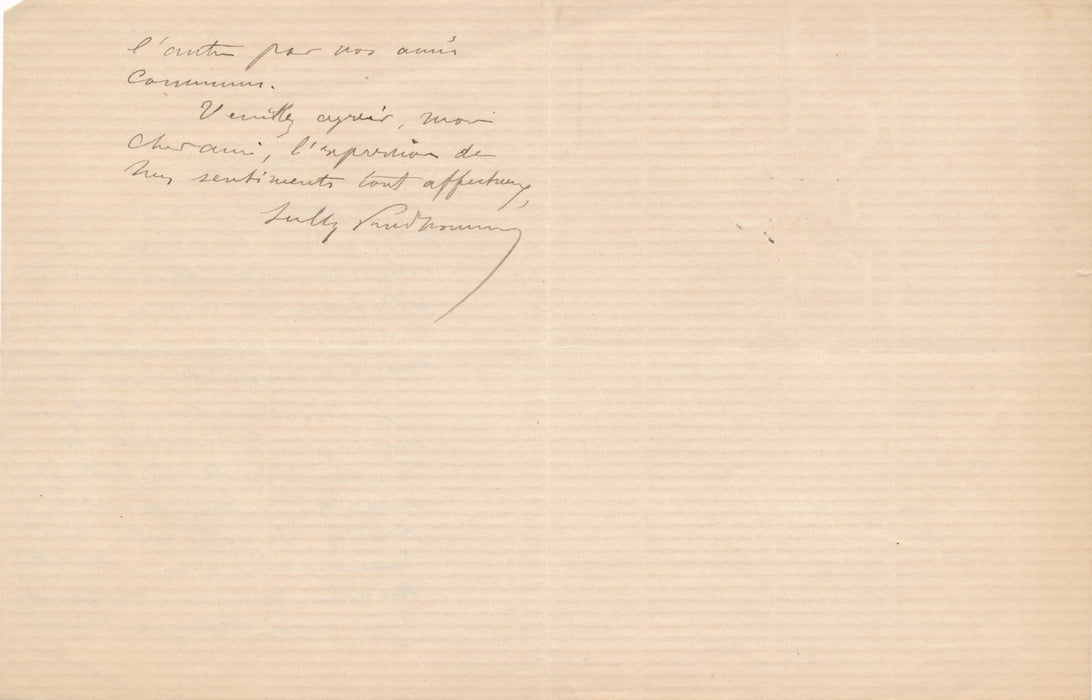 l'autre par nos amis
communs.
Veuillez agréer, mon
cher ami, l'expression de
mes sentiments tout affectueux,
Sully Prudhomme